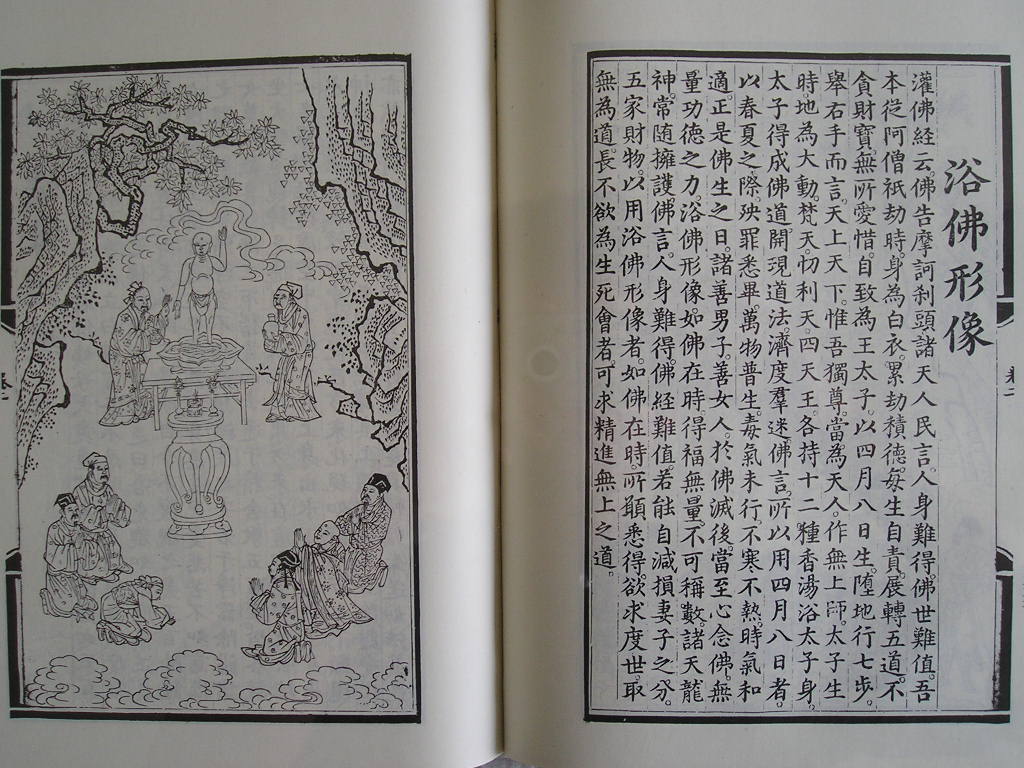 浴佛形像
灌佛經云。佛告摩訶刹頭諸天人民言。人身難得。佛世難值。吾
本從阿僧祇劫時。身為白衣。累劫積德。每生自責。展轉五道。不
貪財寶。無所愛惜。自致為王太子。以四月八日生。墮地行七步。
舉右手而言。天上天下。惟吾獨尊。當為天人。作無上師。太子生
時。地為大動。梵天。忉利天。四天王。各持十二種香湯浴太子身。
太子得成佛道。開現道法。濟度羣迷。佛言。所以用四月八日者。
以春夏之際。殃罪悉畢。萬物普生。毒氣未行。不寒不熱。時氣和
適。正是佛生之日。諸善男子。善女人。於佛滅後。當至心念佛。無
量功德之力。浴佛形像。如佛在時。得福無量。不可稱數。諸天龍
神。常隨擁護。佛言。人身難得。佛經難值。若能自減損妻子之分。
五家財物。以用浴佛形像者。如佛在時。所願悉得。欲求度世。取
無為道。長不欲為生死會者。可求精進無上之道。
卷二